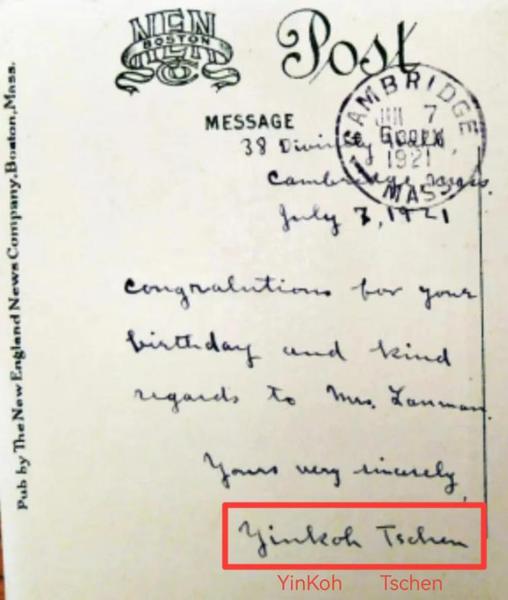 NEN
BOSTON
Co
Post
CAMBRIDGE
7
6 00 PM
1921
MASS
MESSAGE
38 Divinity
Cambridge, Mass.
July 7, 1921
Congralutions for your
birthday and kind
regards to Mrs. Lanman.
Yours very sincerely,
Yinkoh Tschen
YinKoh Tschen
Pub by The New England News Company, Boston, Mass.